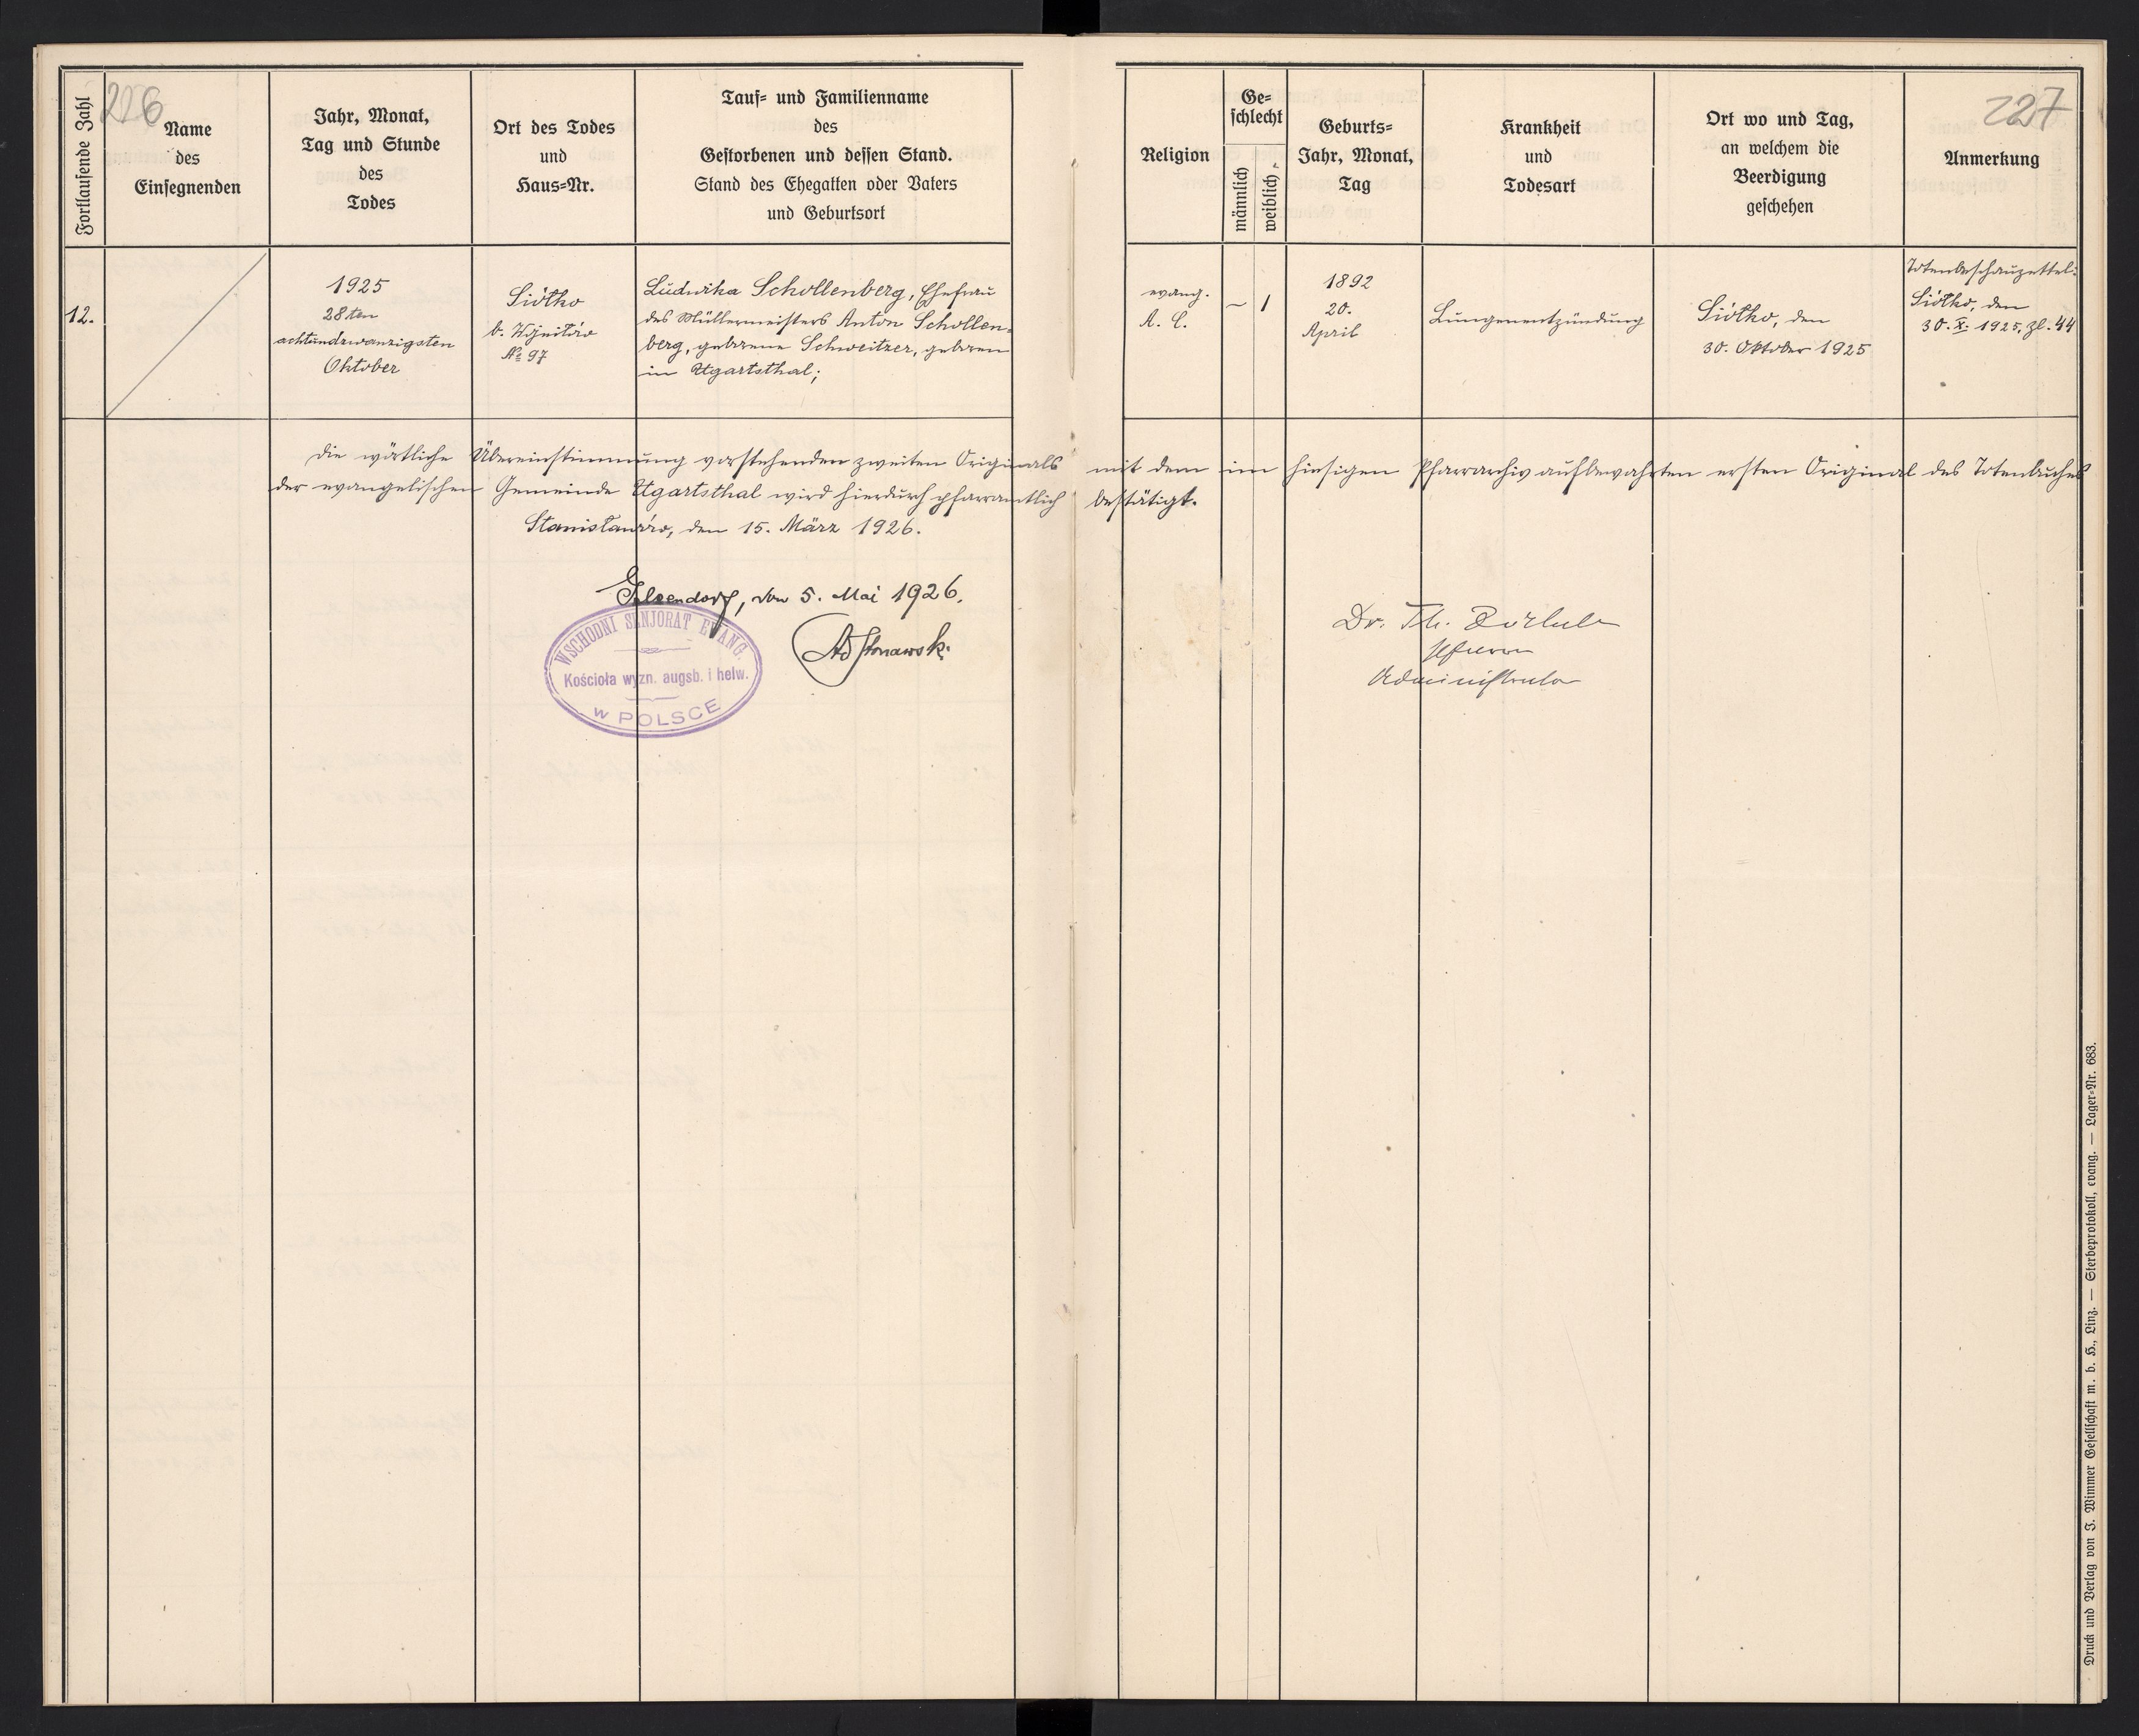 226
Fortlaufende Zahl
Name
des
Einsegnenden
Jahr, Monat,
Tag und Stunde
des
Todes
Ort des Todes
und
Haus-Nr.
Tauf- und Familienname
des
Gestorbenen und dessen Stand.
Stand des Ehegatten oder Vaters
und Geburtsort
12.
1925
28ten
achtundzwanzigsten
Oktober
Siółko
b. Wojniłów
No 97
Ludwika Schollenberg, Ehefrau
des Müllermeisters Anton Schollen-
berg, geborene Schweitzer, geboren
in Ugartsthal;
227
Religion
Ge-
schlecht
männlich
weiblich
Geburts-
Jahr, Monat,
Tag
Krankheit
und
Todesart
Ort wo und Tag,
an welchem die
Beerdigung
geschehen
Anmerkung
evang.
A. C.
~ 1
1892
20.
April
Lungenentzündung
Siółko, den
30. Oktober 1925
Totenbeschauzettel:
Siółko, den
30. X. 1925, Zl. 44
Die wörtliche Übereinstimmung vorstehenden zweiten Originals mit dem im hiesigen Pfarrarchiv aufbewahrten ersten Original des Totenbuches
der evangelischen Gemeinde Ugartsthal wird hierdurch pfarramtlich bestätigt.
Stanisławów, den 15. März 1926.
Gelsendorf, den 5. Mai 1926.
WSCHODNI SENJORAT EWANG.
Kościoła wyzn. augsb. i helw.
W POLSCE
Dr. Th.
Administrator
Druck und Verlag von J. Wimmer Gesellschaft m. b. H., Linz. — Sterbeprotokoll, evang. — Lager-Nr. 683.